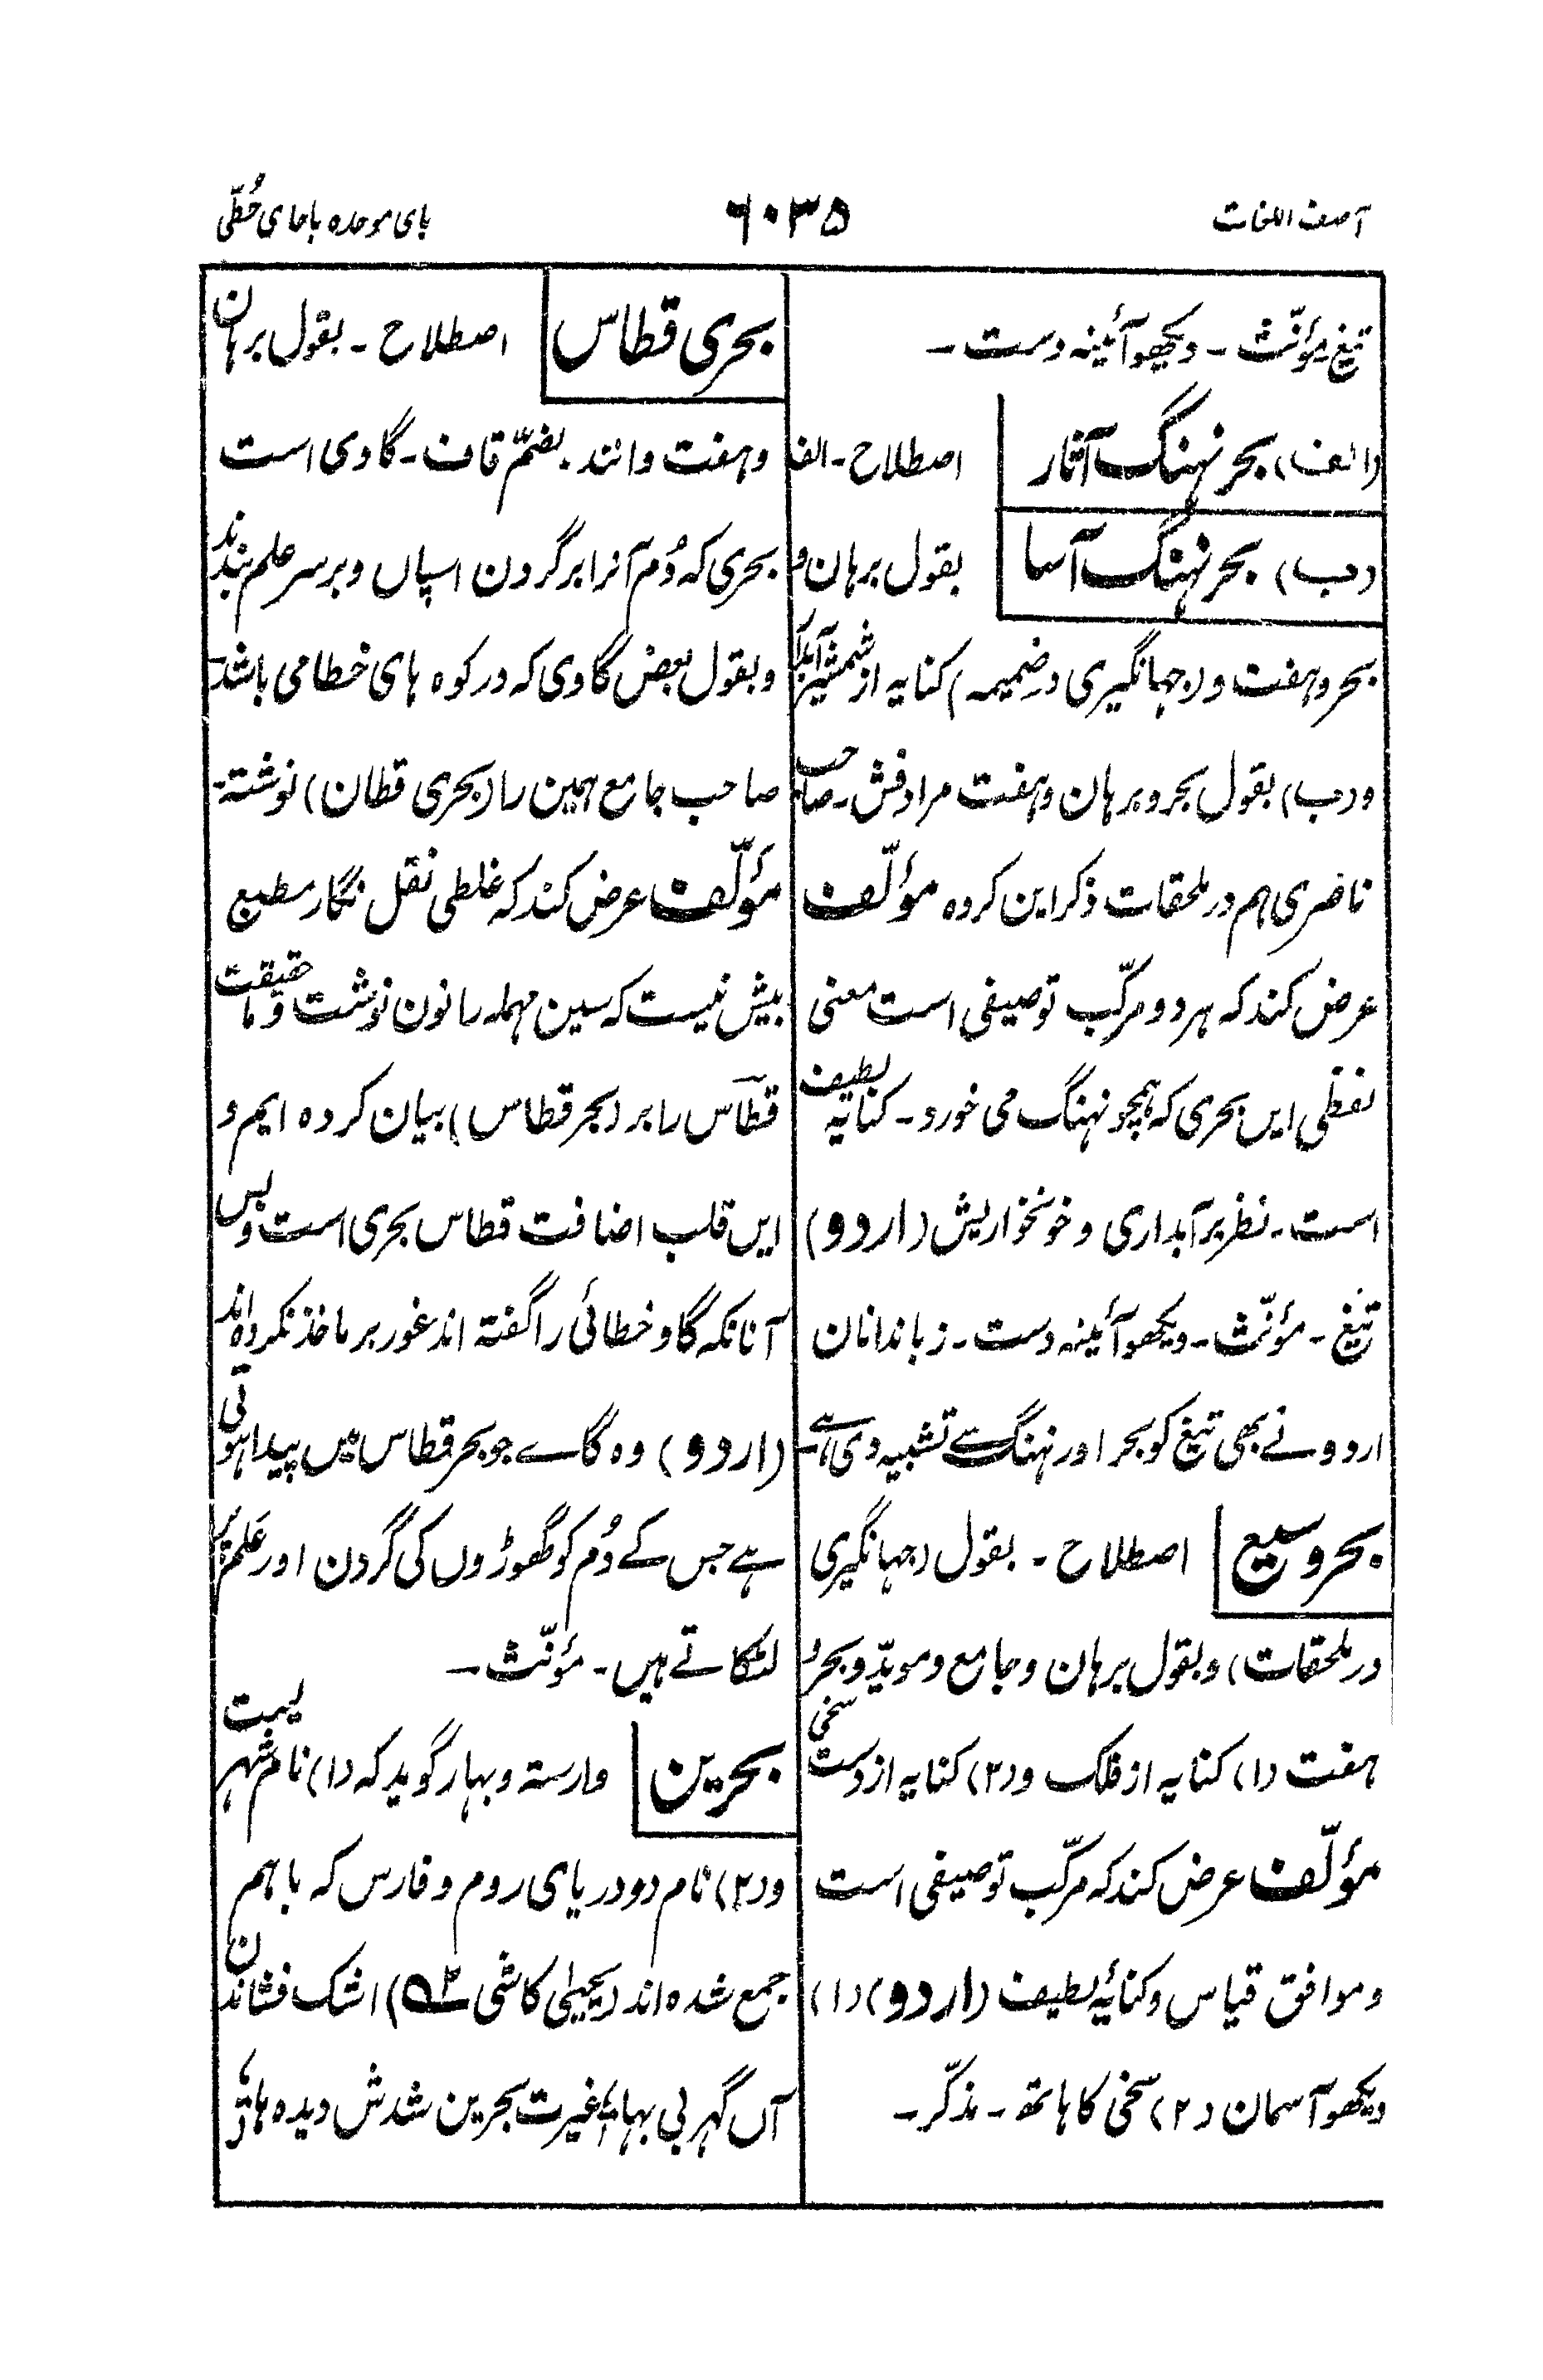 آصف اللغات
۶۰۳۵
بای موحدہ باحای حُطّی
تیغ مؤنّث ۔ دیکھو آئینہ دست ۔
(الف) بحر نہنگ آثار اصطلاح ۔ الف
(ب) بحر نہنگ آسا بقول برہان و
بحر و ہفت و (جہانگیری در ضمیمہ) کنایہ از شمشیر آبدار
و (ب) بقول بحر و برہان و ہفت مرادفش ۔ صاحب
ناصری ہم در ملحقات ذکر این کردہ مؤلّف
عرض کند کہ ہر دو مرکّب توصیفی است معنی
لفظی ایں بحری کہ ہمچو نہنگ می خورد ۔ کنایۂ لطیف
است ۔ نظر بر آبداری و خونخواریش (اردو)
تیغ ۔ مؤنّث ۔ دیکھو آئینہ دست ۔ زباندانان
اردو نے بھی تیغ کو بحر اور نہنگ سے تشبیہ دی ہے ۔
بحر وسیع اصطلاح ۔ بقول (جہانگیری
در ملحقات) و بقول برہان و جامع و مویّد و بحر و
ہفت (۱) کنایہ از فلک و (۲) کنایہ از دست سخی
مؤلّف عرض کند کہ مرکّب توصیفی است
و موافق قیاس و کنایۂ لطیف (اردو) (۱)
دیکھو آسمان (۲) سخی کا ہاتھ ۔ مذکّر ۔
بحری قطاس اصطلاح ۔ بقول برہان
و ہفت و انند ۔ بضمّ قاف ۔ گاوی است
بحری کہ دُم آنرا بر گردن اسپاں و بر سر علم بندند
و بقول بعض گاوی کہ در کوہ ہای خطا می باشد ۔
صاحب جامع ہمین را (بحری قطان) نوشتہ ۔
مؤلّف عرض کند کہ غلطی نقل نگار مطبع
بیش نیست کہ سین مہملہ را نون نوشت و ما حقیقت
قطاس را بر (بحر قطاس) بیان کردہ ایم و
ایں قلب اضافت قطاس بحری است و بس
آنانکہ گاو خطائی را گفتہ اند غور بر ماخذ نکردہ اند
(اردو) وہ گاے جو بحر قطاس میں پیدا ہوتی
ہے جس کے دُم کو گھوڑوں کی گردن اور عَلَم پر
لٹکاتے ہیں ۔ مؤنّث ۔
بحرین وارستہ و بہار گوید کہ (۱) نام شہریست
و (۲) نام دو دریای روم و فارس کہ باہم
جمع شدہ اند (یحییٰ کاشی ؎) اشک فشاندن
آں گہر بی بہا غیرت بحرین شدش دیدہ ہا